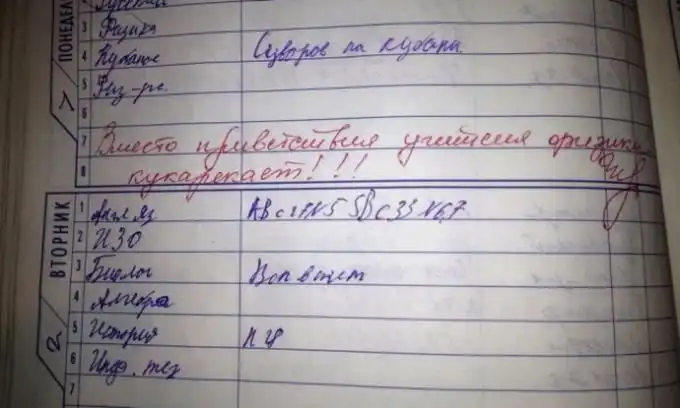 ПОНЕДЕЛ
2
3 Физика
4 Кубанов Суворов на кубани
5 Физ-ра
6
7 Вместо приветствия учителя физики
8 кукарекает!!!
ВТОРНИК
2
1 Англ яз АВ с 27 N5 SВ с 33 N6,7
2 ИЗО
3 Биолог Воп в тет
4 Алгебра
5 История п 28
6 Инф. тех
7